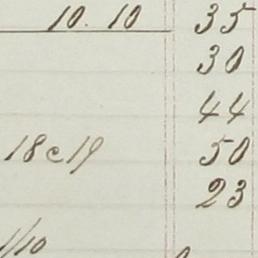 10. 10 35
30
44
18 c 19 50
23
1/10